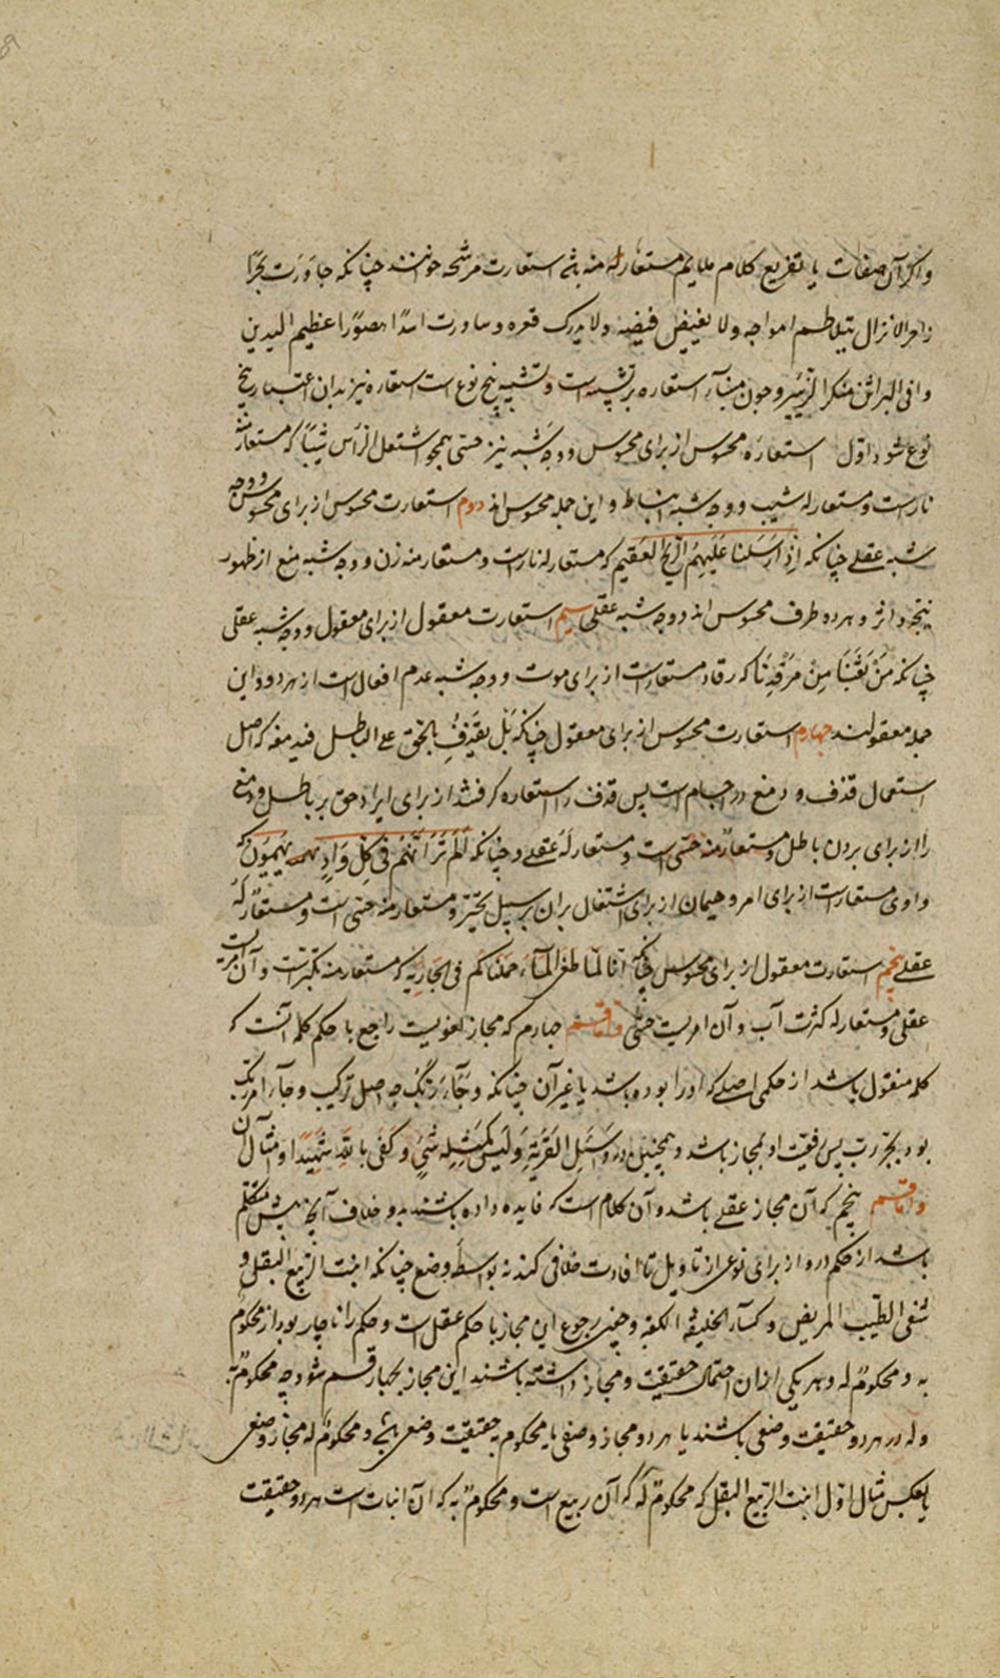 واکر آن صفات یا تفریع کلام ملایم مستعار له منه باشد استعارت مرشحه خوانند چنانکه جاوَرَت بحرًا
زاخرا لانزال یتلاطم امواجه ولا یغیض فیضه ولا یدرک قعره وساورت اسدًا هصورًا عظیم الیدین
وافی البراثن منکر الزئیر وچون مبنآء استعاره بر تشبیه است وتشبیه پنج نوع است استعاره نیز بدان اعتبار پنج
نوع شود اوّل استعارهٔ محسوس از برای محسوس ووجه شبه نیز حسی همچو اشتعل الرأس شیبًا که مستعار منه
نارست ومستعار له شیب ووجه شبه انبساط واین جمله محسوس اند دوم استعارت محسوس از برای محسوس ووجه
شبه عقلی چنانکه اِذ اَرسَلنا عَلَیهِمُ الرّیحَ العَقیم که مستعار له نارست ومستعار منه زن ووجه شبه منع از ظهور
نتیجه واثر وهر دو طرف محسوس اند ووجه شبه عقلی سیم استعارت معقول از برای معقول ووجه شبه عقلی
چنانکه مَنْ بَعَثَنَا مِنْ مَرْقَدِنَا که رقاد مستعارست از برای موت ووجه شبه عدم افعال است از هر دو واین
جمله معقولند چهارم استعارت محسوس از برای معقول چنانکه بَل نَقذِفُ بالحَق علی الباطل فیدمغه که اصل
استعمال قذف ودمغ در اجسام است پس قذف را استعاره کرفتند از برای ایراد حق بر باطل ودمغ
را از برای بردن باطل ومستعار منه حسّی است ومستعار لَه عقلی وچنانکه اَلَم تَرَ اَنَّهُم فی کلِّ وَادٍ یَهیمُونَ که
وادی مستعارست از برای امر وهیمان از برای اشتغال بدان بر سبیل تحیّر ومستعار منه حسّی است ومستعارٌ لَهُ
عقلی پنجم استعارت معقول از برای محسوس چنانکه انّا لمّا طغی المآء حملناکم فی الجاریه که مستعار منه تکبّرست وآن امریست
عقلی ومستعار له کثرت آب وآن امریست حسّی وامّا قسم چهارم که مجاز لغویست راجع با حکم کلمه آنست که
کلمه منقول باشد از حکمی اصلی که او را بوده باشد یا غیر آن چنانکه وَجَآءَ رَبُّکَ چه اصل ترکیب وجآء امر ربک
بود بجرّ رب پس رفعیت او مجاز باشد وهمچنین در وَاسئَلِ القَریَةَ وَلَیسَ کَمِثلِهِ شیءٌ وَکَفَی بالله شَهیدًا وامثال آن
وامّا قسم پنجم که آن مجاز عقلی باشد وآن کلام است که فایده داده باشند بدو خلاف آنچه پیش متکلم
باشد از حکم درو از برای نوعی از تأویل تا افادت خلافی کند نه بواسطهٔ وضع چنانکه انبت الرّبیع البقل و
شفی الطّبیب المریض وکسآء الخلیفة الکعبه وچون رجوع این مجاز با حکم عقل است وحکم را ناچار بود از محکومٌ
به ومحکومٌ له وهر یکی ازان احتمال حقیقت ومجاز داشته باشند این مجاز بچهار قسم شود چه محکومٌ به
وله در هر دو حقیقت وضعی باشند یا هر دو مجاز وضعی یا محکوم به حقیقت وضعی باشد ومحکومٌ له مجاز وضعی
یا بعکس مثال اوّل انبت الرّبیع البقل که محکومٌ لَه که آن ربیع است ومحکومٌ به که آن انبات است هر دو حقیقت